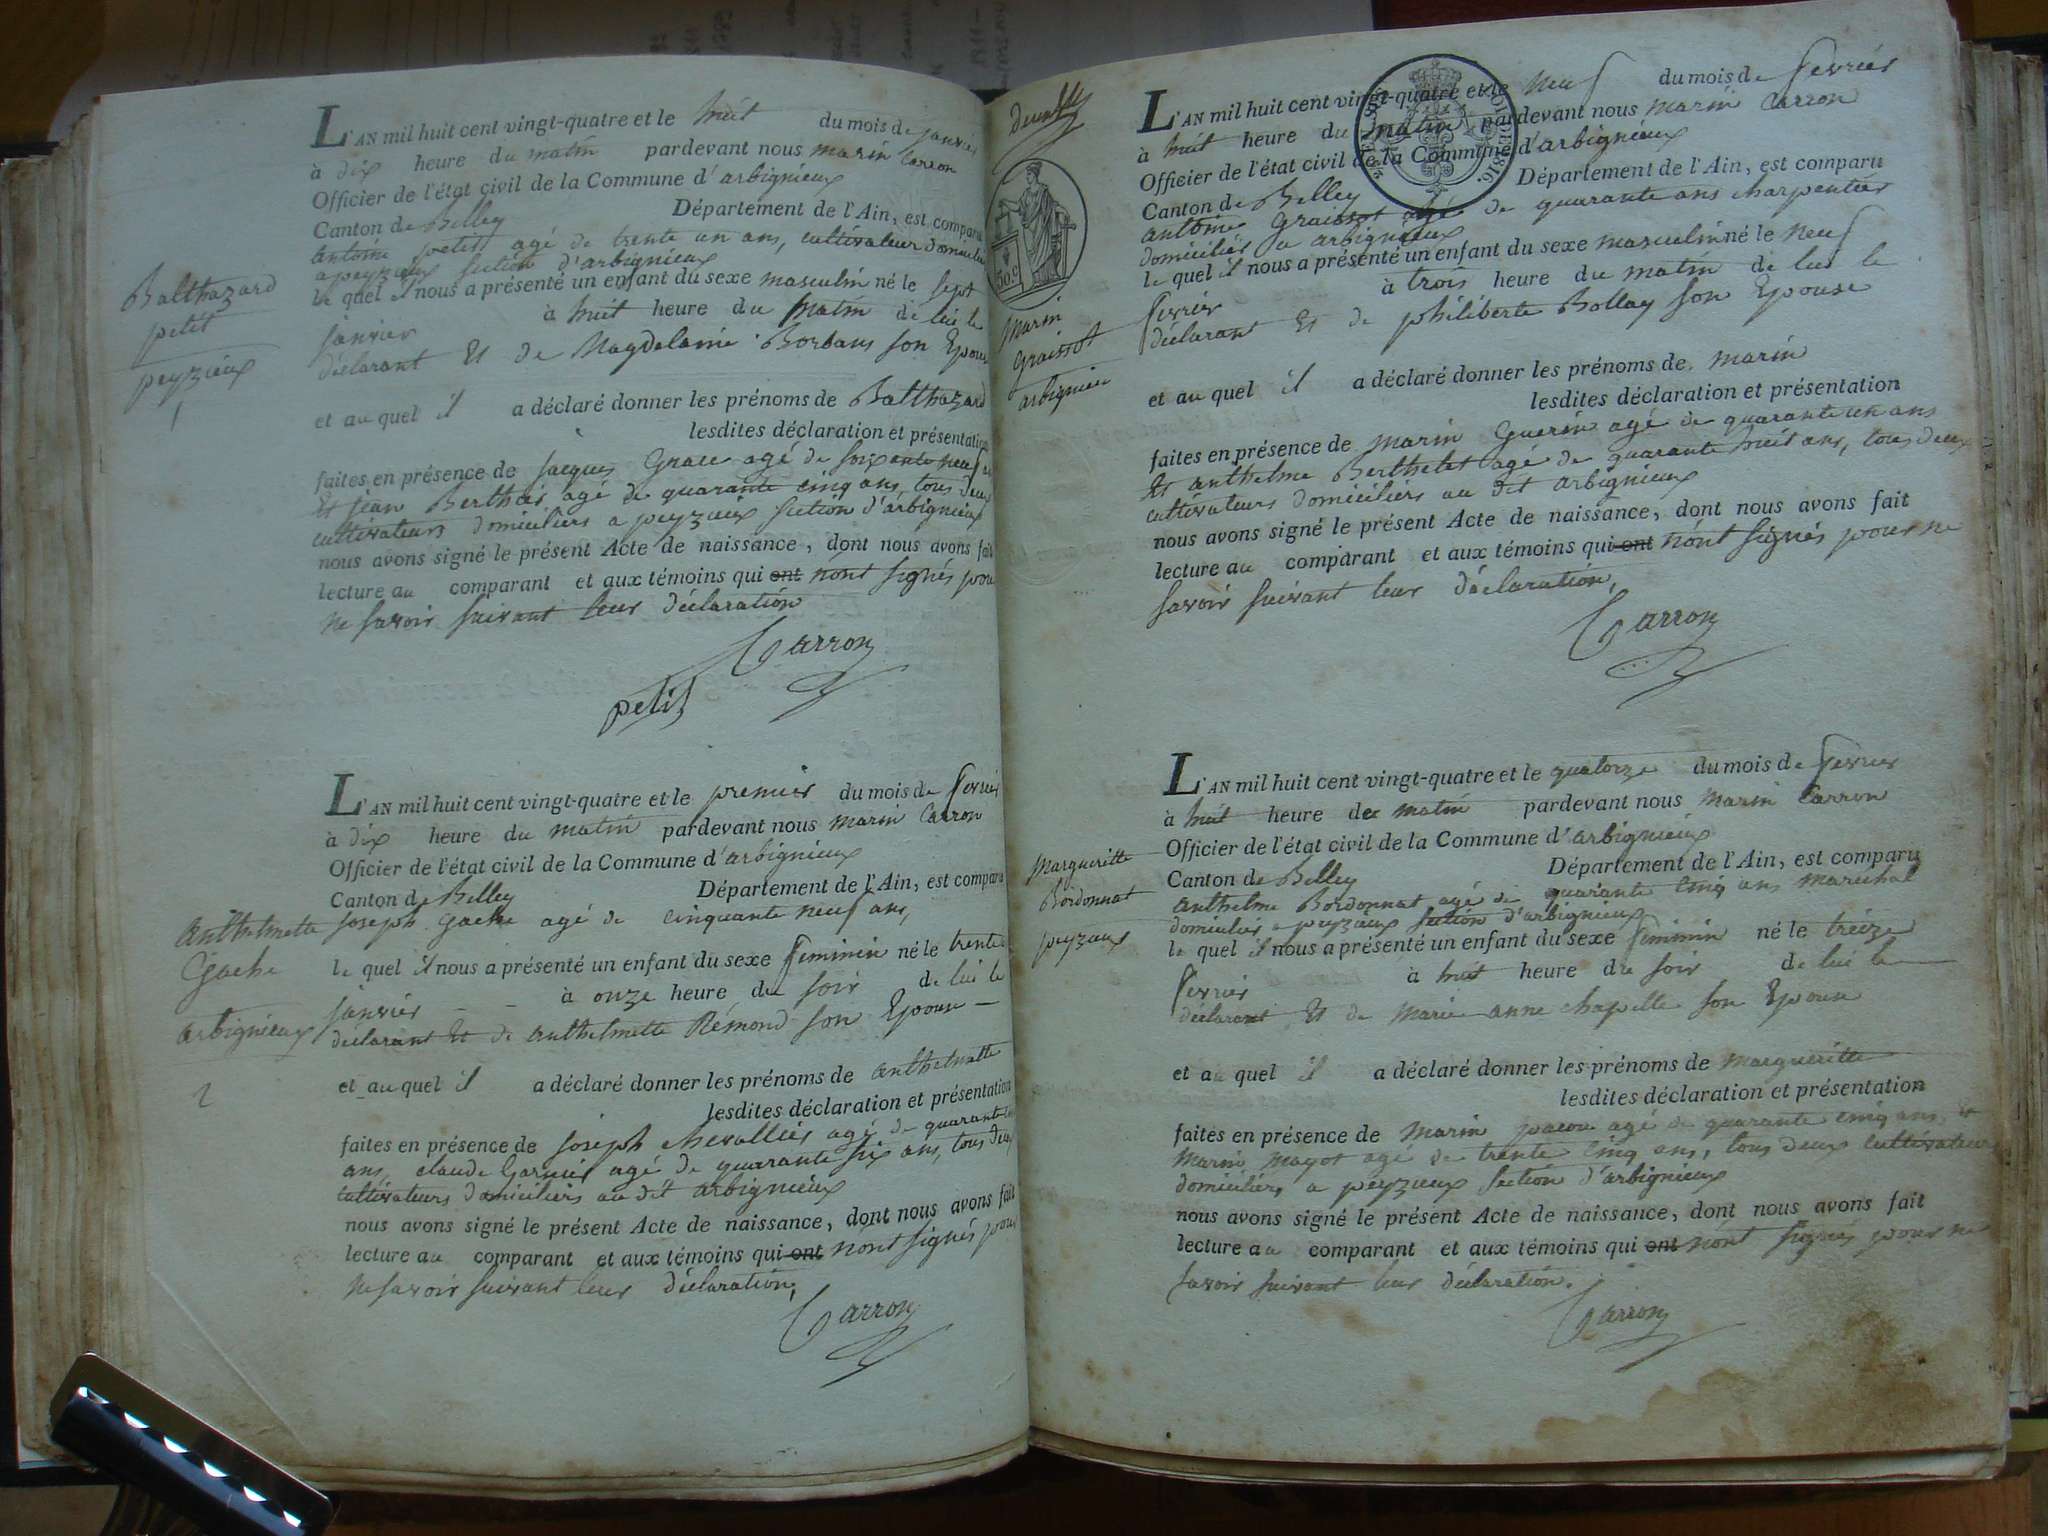 L'AN mil huit cent vingt-quatre et le huit du mois de janvier
à dix heure du matin pardevant nous marin Carron
Officier de l'état civil de la Commune d'arbignieux
Canton de Belley Département de l'Ain, est comparu
antoine petit agé de trente un ans, cultivateur domicilié
a peyzieux section d'arbignieux
le quel il nous a présenté un enfant du sexe masculin né le sept
janvier à huit heure du matin de lui le
déclarant Et de Magdelaine Borbans son Epouse
et au quel il a déclaré donner les prénoms de Balthazard
lesdites déclaration et présentation
faites en présence de jacques Grace agé de soixante neuf
Et jean Berthet agé de quarante cinq ans, tous deux
cultivateurs domiciliers a peyzieux section d'arbignieux
nous avons signé le présent Acte de naissance, dont nous avons fait
lecture au comparant et aux témoins qui ont n'ont signés pour
ne savoir suivant leur déclaration
Carron
petit
Balthazard
petit
peyzieux
1
L'AN mil huit cent vingt-quatre et le premier du mois de fevrier
à dix heure du matin pardevant nous marin Carron
Officier de l'état civil de la Commune d'arbignieux
Canton de Belley Département de l'Ain, est comparu
joseph Gache agé de cinquante neuf ans,
le quel il nous a présenté un enfant du sexe feminin né le trente
janvier à onze heure du soir de lui le
déclarant Et de anthelmette Rémond son Epouse
et au quel il a déclaré donner les prénoms de anthelmette
lesdites déclaration et présentation
faites en présence de joseph chevallier agé de quarante
ans, claude Garnier agé de quarante six ans, tous deux
cultivateurs domiciliers au dit arbignieux
nous avons signé le présent Acte de naissance, dont nous avons fait
lecture au comparant et aux témoins qui ont n'ont signés pour
ne savoir suivant leur déclaration,
Carron
Anthelmette
Gache
arbignieux
2
L'AN mil huit cent vingt-quatre et le neuf du mois de fevrier
à huit heure du matin pardevant nous marin Carron
Officier de l'état civil de la Commune d'arbignieux
Canton de Belley Département de l'Ain, est comparu
antoine Graissot agé de quarante ans charpentier
domicilier a arbignieux
le quel il nous a présenté un enfant du sexe masculin né le neuf
fevrier à trois heure du matin de lui le
déclarant Et de philiberte Bollay son Epouse
et au quel il a déclaré donner les prénoms de marin
lesdites déclaration et présentation
faites en présence de marin Guerin agé de quarante un ans
Et anthelme Berthelet agé de quarante huit ans, tous deux
cultivateurs domiciliers au dit arbignieux
nous avons signé le présent Acte de naissance, dont nous avons fait
lecture au comparant et aux témoins qui ont n'ont signés pour ne
savoir suivant leur déclaration,
Carron
50c.
marin
Graissot
arbignieu
L'AN mil huit cent vingt-quatre et le quatorze du mois de fevrier
à huit heure de matin pardevant nous marin Carron
Officier de l'état civil de la Commune d'arbignieux
Canton de Belley Département de l'Ain, est comparu
anthelme Bordonnat agé de quarante cinq ans marechal
domicilier a peyzieux section d'arbignieux
le quel il nous a présenté un enfant du sexe feminin né le treize
fevrier à huit heure du soir de lui le
déclarant Et de marie anne chapelle son Epouse
et au quel il a déclaré donner les prénoms de margueritte
lesdites déclaration et présentation
faites en présence de marin pacou agé de quarante cinq ans et
marin mayot agé de trente cinq ans, tous deux cultivateurs
domiciliers a peyzieux section d'arbignieux
nous avons signé le présent Acte de naissance, dont nous avons fait
lecture au comparant et aux témoins qui ont n'ont signés pour ne
savoir suivant leur déclaration.
Carron
Margueritte
Bordonnat
peyzeux